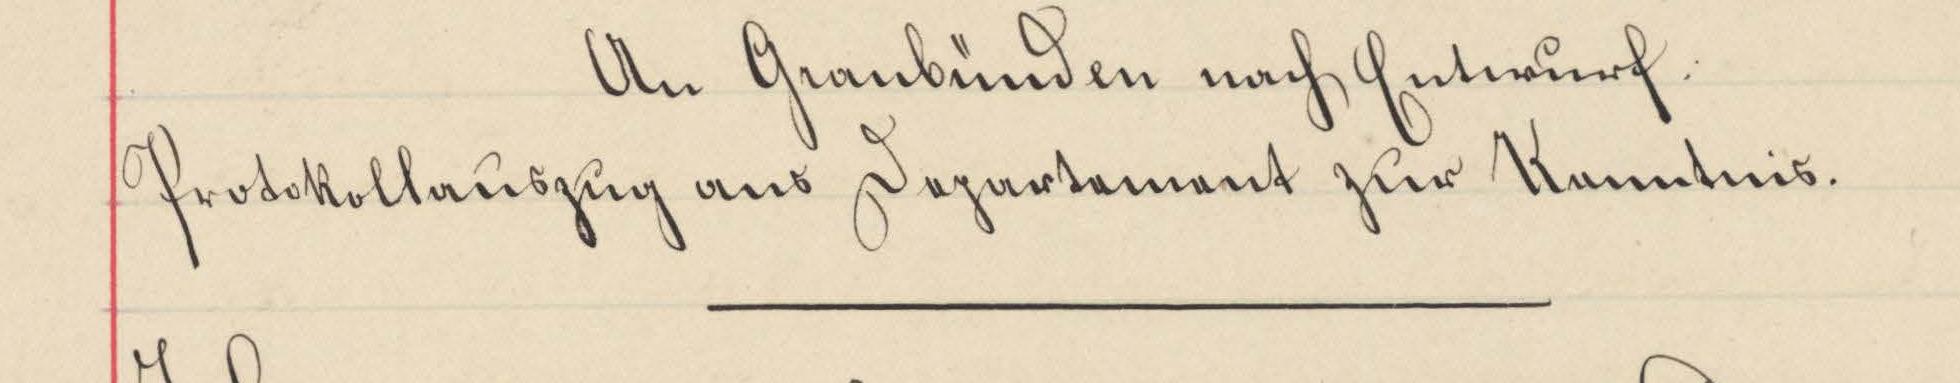 An Graubünden nach Entwurf.
Protokollauszug ans Departement zur Kenntnis.